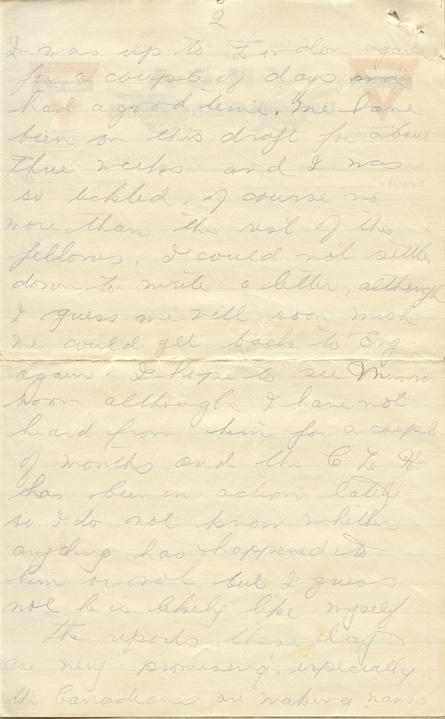 2
I was up to London again
for a couple of days and
had a good time. We have
been on this draft for about
three weeks and I was
so tickled, of course no
more than the rest of the
fellows, I could not settle
down to write a letter, although
I guess we will soon wish
we could get back to Eng
again. I hope to see Munro
soon although I have not
heard from him for a couple
of months and the C L H
has been in action lately
so I do not know whether
anything has happened to
him or not but I guess
not he is likely like myself
The reports these days
are very promising, especially
the Canadians are making names